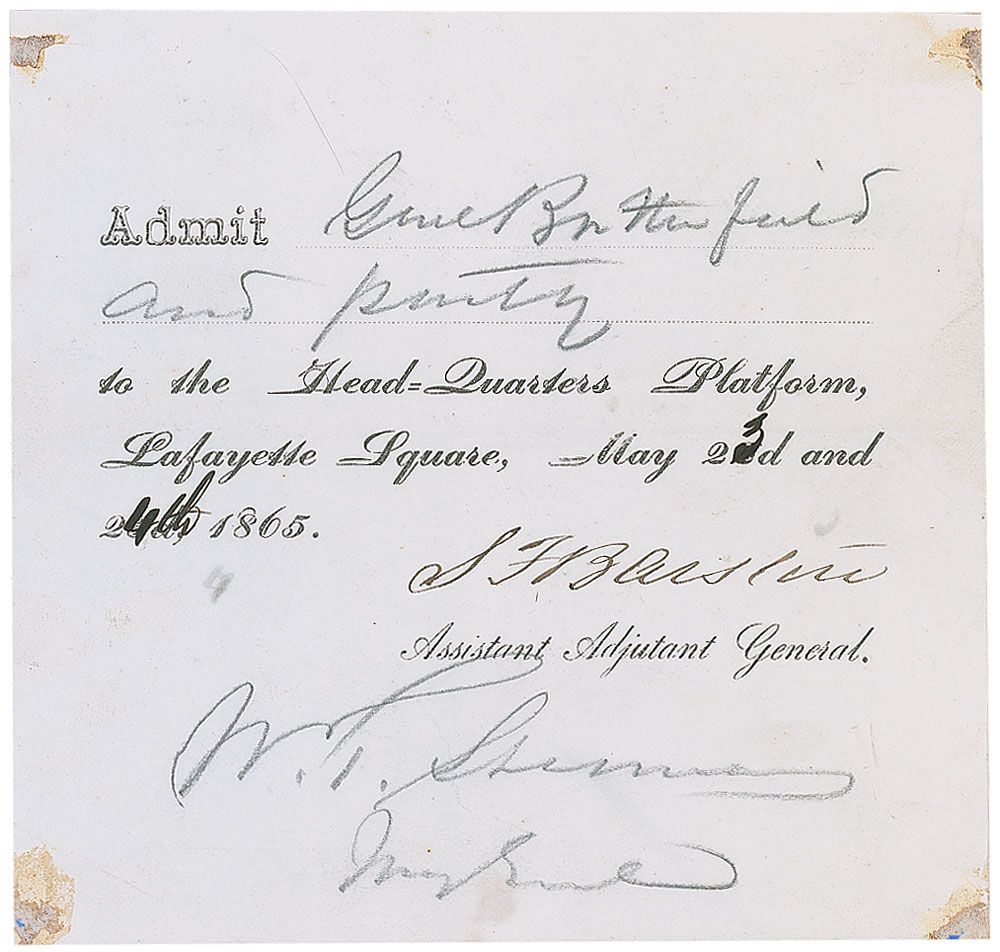 Admit Genl Butterfield
and party
to the Head=Quarters Platform,
Lafayette Square, May 23d and
24th, 1865.
S F Barstow
Assistant Adjutant General.
W. T. Sherman
Maj Genl